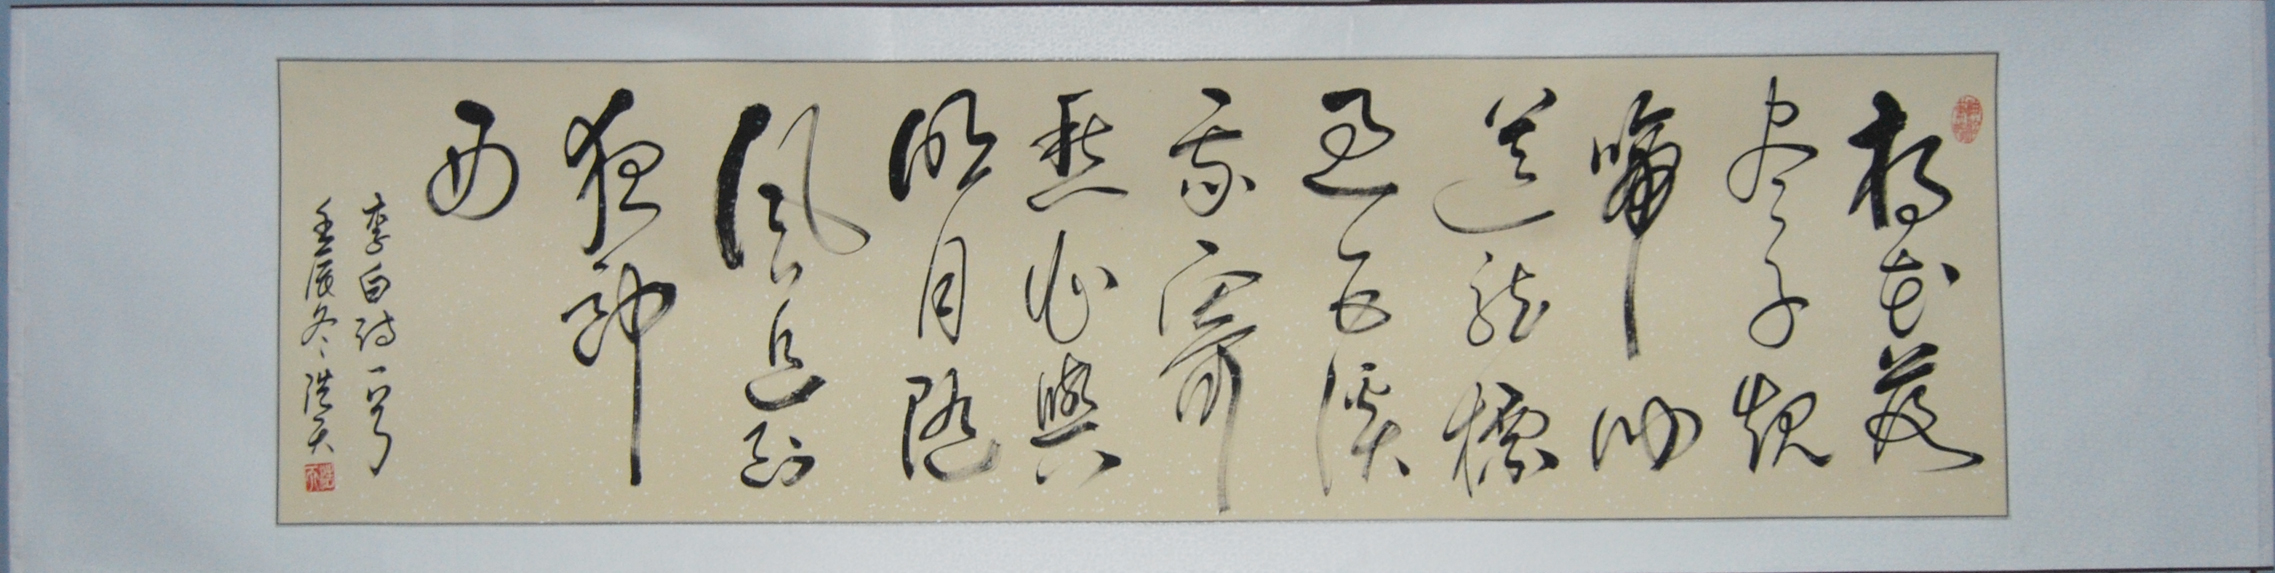 楊花落
尽子規
啼闻
道龍標
过五溪
我寄
愁心與
明月随
风直到
夜郎
西
李白诗一首
壬辰冬浩天